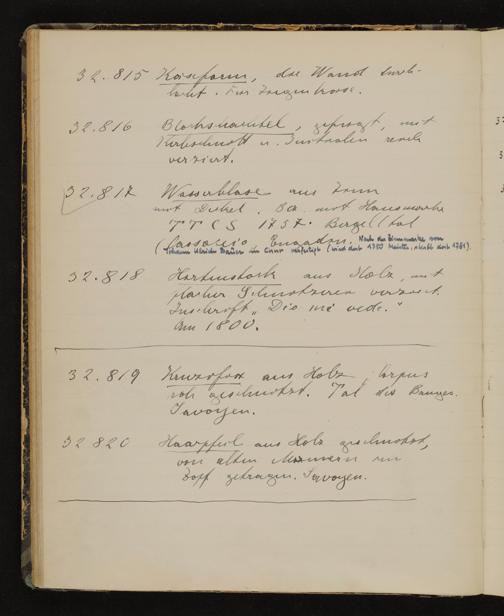 32.815 Käseform, die Wand durch-
locht. Für Ziegenkäse.
32.816 Blockschachtel, gefragt, mit
Kerbschnitt u. Initialen reich
verziert.
32.817 Wasserblase aus Zinn
mit Deckel. Bez. mit Hausmarke
TTCS 1757. Bergell
Engadin. Nach der Zinnmarke von
Johann Ulrich Bauer in Chur (wird dort 1750 Meister, stirbt dort 1781).
32.818 Hirtenstock aus Holz, mit
flacher Schnitzerei verziert.
Inschrift „Dio mi vede."
Um 1800.
32.819 Kruzifix aus Holz, Corpus
roh geschnitzt. Tal des Bauges.
Savoyen.
32 820 Haarpfeil aus Holz geschnitzt,
von alten Männern im
Zopf getragen. Savoyen.